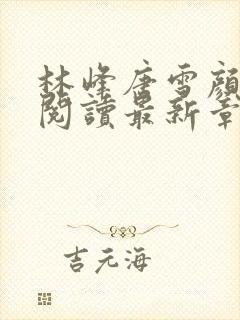 林峰唐雪顏
閱讀最新章
吉元海